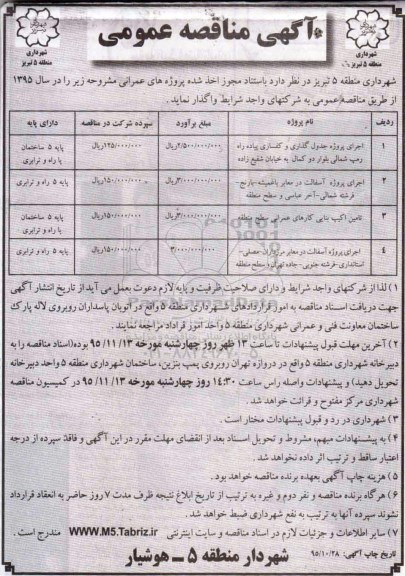 آگهی مناقصه عمومی
شهرداری
منطقه ۵ تبریز
شهرداری
منطقه ۵ تبریز
شهرداری منطقه ۵ تبریز در نظر دارد باستناد مجوز اخذ شده پروژه های عمرانی مشروحه زیر را در سال ۱۳۹۵
از طریق مناقصه عمومی به شرکتهای واجد شرایط واگذار نماید.
ردیف نام پروژه مبلغ برآورد سپرده شرکت در مناقصه دارای پایه
۱ اجرای پروژه جدول گذاری و کفسازی پیاده راه رمپ شمالی بلوار دو کمال به خیابان شفیع زاده ۲/۵۰۰/۰۰۰/۰۰۰ریال ۱۲۵/۰۰۰/۰۰۰ریال پایه ۵ ساختمان یا راه و ترابری
۲ اجرای پروژه آسفالت در معابر باغمیشه-یارنج-فرشته شمالی-آخر عباسی و سطح منطقه ۳/۰۰۰/۰۰۰/۰۰۰ریال ۱۵۰/۰۰۰/۰۰۰ریال پایه ۵ راه و ترابری
۳ تامین اکیپ بنایی کارهای عمرانی سطح منطقه ۳/۰۰۰/۰۰۰/۰۰۰ریال ۱۵۰/۰۰۰/۰۰۰ریال پایه ۵ ساختمان یا راه و ترابری
۴ اجرای پروژه آسفالت در معابر مرزداران-مصلی-استانداری-فرشته جنوبی-جاده تهران و سطح منطقه ۳/۰۰۰/۰۰۰/۰۰۰ ۱۵۰/۰۰۰/۰۰۰ریال پایه ۵ راه و ترابری
۱) لذا از شرکتهای واجد شرایط و دارای صلاحیت ظرفیت و پایه لازم دعوت بعمل می آید از تاریخ انتشار آگهی
جهت دریافت اسناد مناقصه به امور قراردادهای شهرداری منطقه ۵ واقع در اتوبان پاسداران روبروی لاله پارک
ساختمان معاونت فنی و عمرانی شهرداری منطقه ۵ واحد امور قراداد مراجعه نمایند.
۲) آخرین مهلت قبول پیشنهادات تا ساعت ۱۳ ظهر روز چهارشنبه مورخه ۹۵/۱۱/۱۳ بوده(اسناد مناقصه را به
دبیرخانه شهرداری منطقه ۵ واقع در دروازه تهران روبروی پمپ بنزین، ساختمان شهرداری منطقه ۵ واحد دبیرخانه
تحویل دهند) و پیشنهادات واصله راس ساعت ۱۴:۳۰ روز چهارشنبه مورخه ۹۵/۱۱/۱۳ در کمیسیون مناقصه
شهرداری مرکز مفتوح و قرائت خواهد شد.
۳) شهرداری در رد و قبول پیشنهادات مختار است.
۴) به پیشنهادات مبهم، مشروط و تحویل اسناد بعد از انقضای مهلت مقرر در این آگهی و فاقد سپرده از درجه
اعتبار ساقط و ترتیب اثر داده نخواهد شد.
۵) هزینه چاپ آگهی بعهده برنده مناقصه خواهد بود.
۶) هرگاه برنده مناقصه و نفر دوم و غیره به ترتیب از تاریخ ابلاغ نتیجه ظرف مدت ۷ روز حاضر به انعقاد قرارداد
نشوند سپرده آنها به ترتیب به نفع شهرداری ضبط خواهد شد.
۷) سایر اطلاعات و جزئیات لازم در اسناد مناقصه و سایت اینترنتی WWW.M5.Tabriz.ir مندرج است.
تاریخ چاپ آگهی: ۹۵/۱۰/۲۸ شهردار منطقه ۵ ــ هوشیار